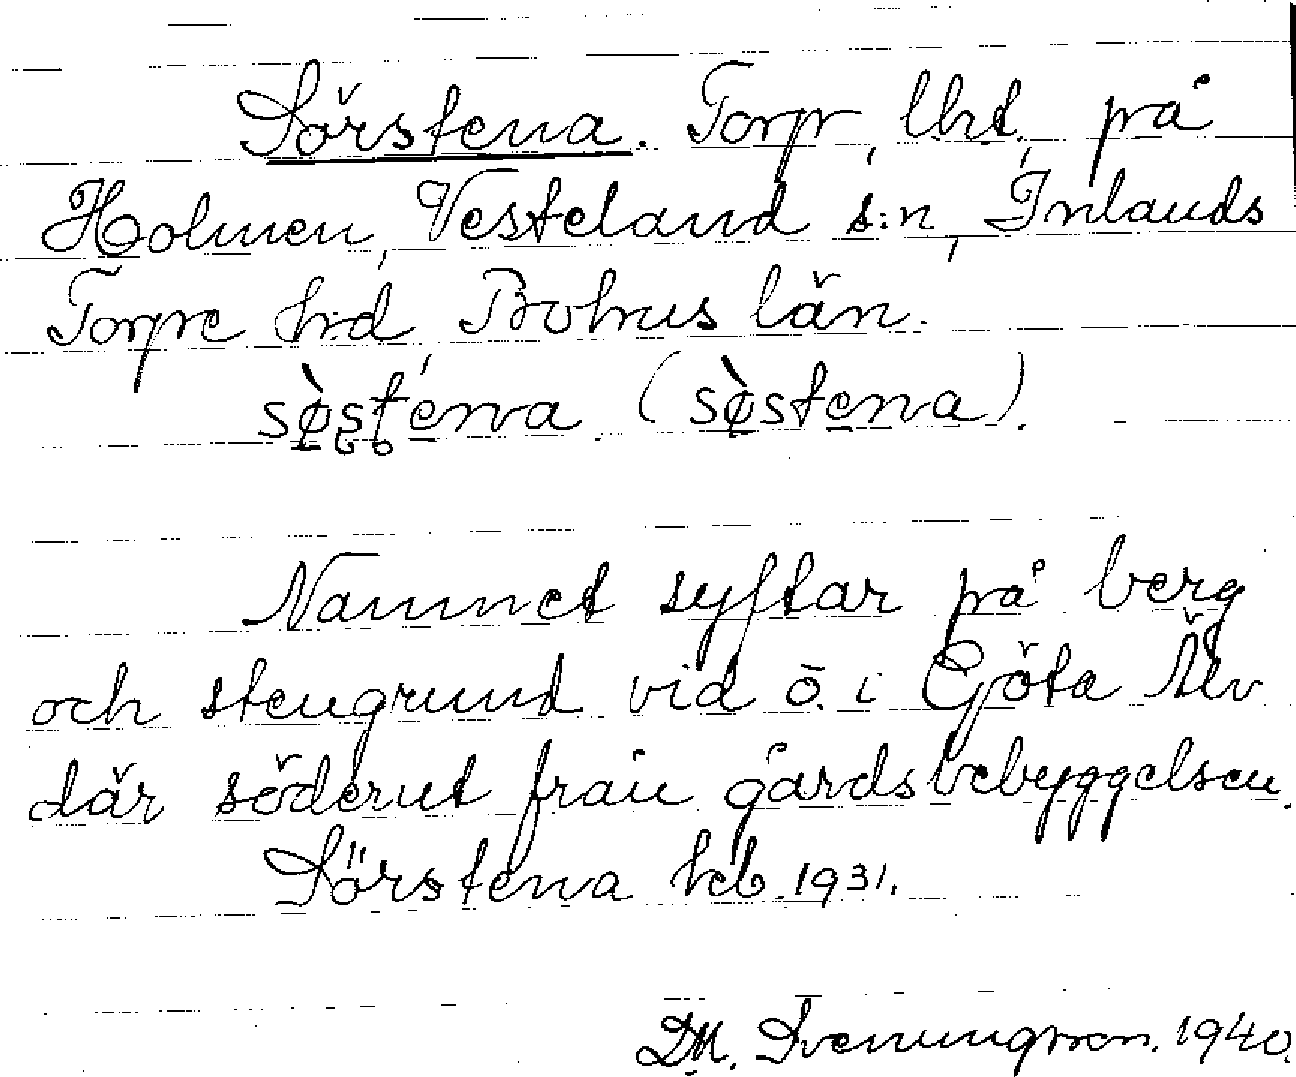 Sörstena. Torp, lht, på
Holmen, Vesteland s:n, Inlands
Torpe hrd, Bohus län.
sø̀stena (sø̀stena).
Namnet syftar på berg
och stengrund vid ö. i Göta Älv
där söderut från gårdsbebyggelsen.
Sörstena hcb. 1931.
D.M. Svenungsson. 1940.